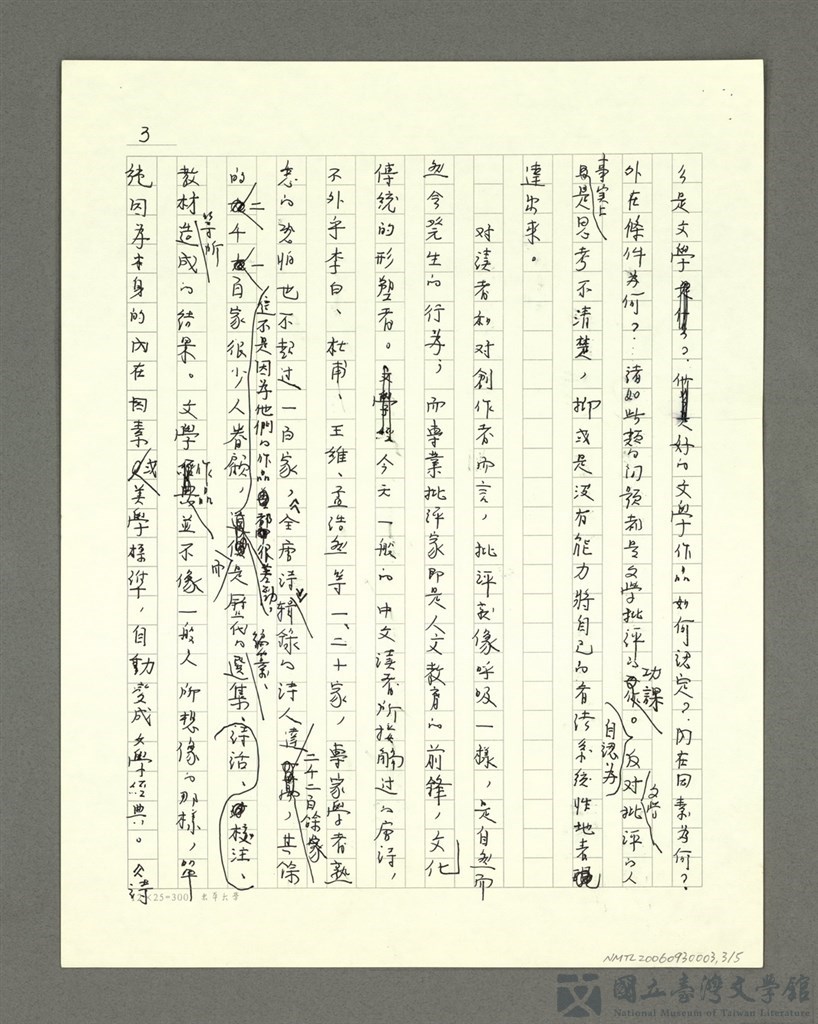 3
么是文學？美好的文學作品如何認定？內在因素為何？
外在條件為何？諸如此類的問題都是文學批評的功課。反對文學批評的人
事實上是思考不清楚，抑或是沒有能力將自己自認為的看法系統性地表
達出來。
对讀者和对創作者而言，批評就像呼吸一樣，是自然而
然會發生的行為；而專業批評家即是人文教育的前鋒，文化
傳統的形塑者。今天一般的中文讀者所接觸过的唐詩，
不外乎李白、杜甫、王維、孟浩然等一、二十家，專家學者熟
悉的恐怕也不超过一百家，《全唐詩》輯錄的詩人達二千二百餘家，其餘
的二千一百家很少人眷顧，這不是因為他們的作品都很差勁，而是歷代的選集、編纂、詩話、校注、
教材等所造成的結果。文學作品並不像一般人所想像的那樣，單
純因為本身的內在因素或美學標準，自動變成文學經典。《詩
12×25=300 東華大學
NMTL20060930003,3/5
國立臺灣文學館
National Museum of Taiwan Literature